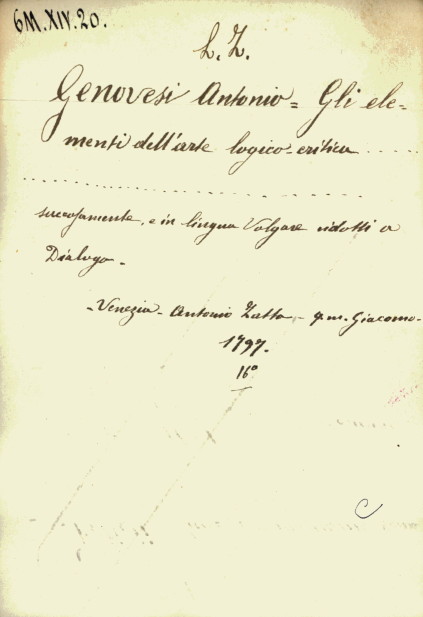 6M.XIV.20.
L. Z.
Genovesi Antonio = Gli ele-
menti dell'arte logico-critica . . . . .
. . . . . . . . . . . . . . . . . . . . . . . .
succosamente, e in lingua Volgare ridotti a
Dialogo -
- Venezia - Antonio Zatta - q.m. Giacomo -
1797.
16°
C